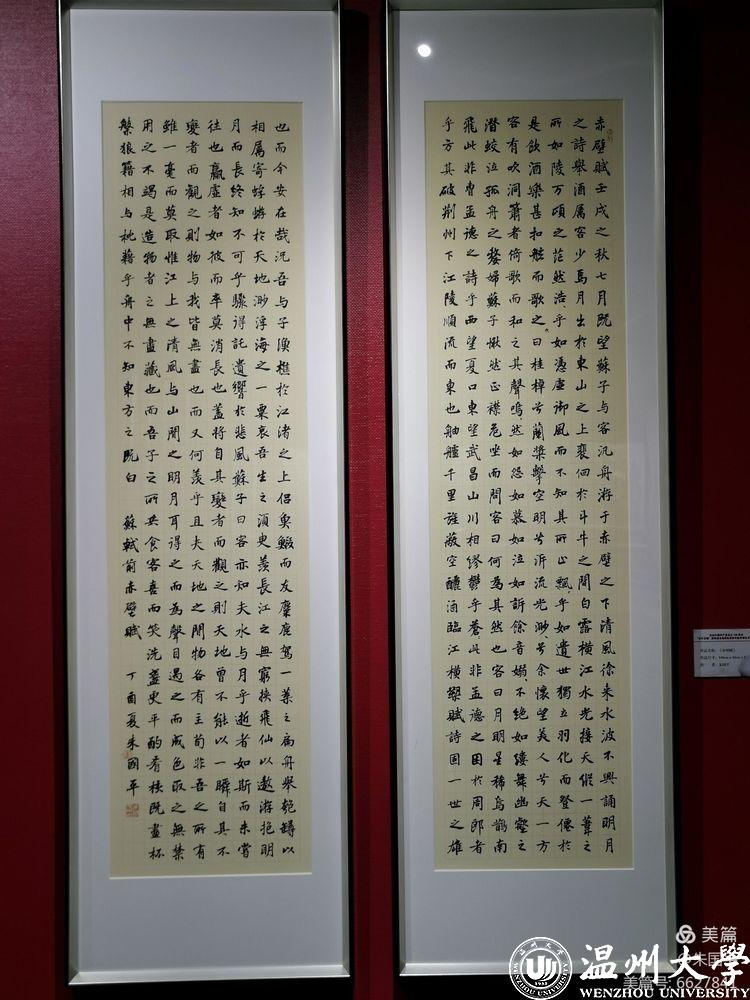 赤壁賦壬戌之秋七月既望蘇子与客汎舟游于赤壁之下清風徐来水波不興誦明月
之詩舉酒属客少焉月出於東山之上裵佪於斗牛之間白露橫江水光接天縱一葦之
所如陵万頃之茫然浩〻乎如馮虛御風而不知其所止飄〻乎如遺世獨立羽化而登僊於
是飲酒樂甚扣舷而歌之〻曰桂棹兮蘭槳擊空明兮泝流光渺〻兮余懷望美人兮天一方
客有吹洞簫者倚歌而和之其聲嗚〻然如怨如慕如泣如訴餘音嫋〻不絕如縷舞幽壑之
潛蛟泣孤舟之嫠婦蘇子愀然正襟危坐而問客曰何為其然也客曰月明星稀烏鵲南
飛此非曹孟德之詩乎西望夏口東望武昌山川相繆鬱乎蒼〻此非孟德之困於周郎者
乎方其破荊州下江陵順流而東也舳艫千里旌蔽空釃酒臨江橫槊賦詩固一世之雄
也而今安在哉況吾与子漁樵於江渚之上侶魚鰕而友麋鹿駕一葉之扁舟舉匏罇以
相属寄蜉蝣於天地渺浮海之一粟哀吾生之須臾羨長江之無窮挾飛仙以遨游抱明
月而長終知不可乎驟得託遺響於悲風蘇子曰客亦知夫水与月乎逝者如斯而未嘗
往也贏虛者如彼而卒莫消長也蓋將自其變者而觀之則天地曾不能以一瞬自其不
變者而觀之則物与我皆無盡也而又何羨乎且夫天地之間物各有主苟非吾之所有
雖一毫而莫取惟江上之清風与山間之明月耳得之而為聲目遇之而成色取之無禁
用之不竭是造物者之無盡藏也而吾子之所共食客喜而笑洗盞更酌肴核既盡杯
槃狼籍相与枕藉乎舟中不知東方之既白 蘇軾前赤壁賦 丁酉夏朱國平
美篇
美篇号: 66278
温州大學
WENZHOU UNIVERSITY